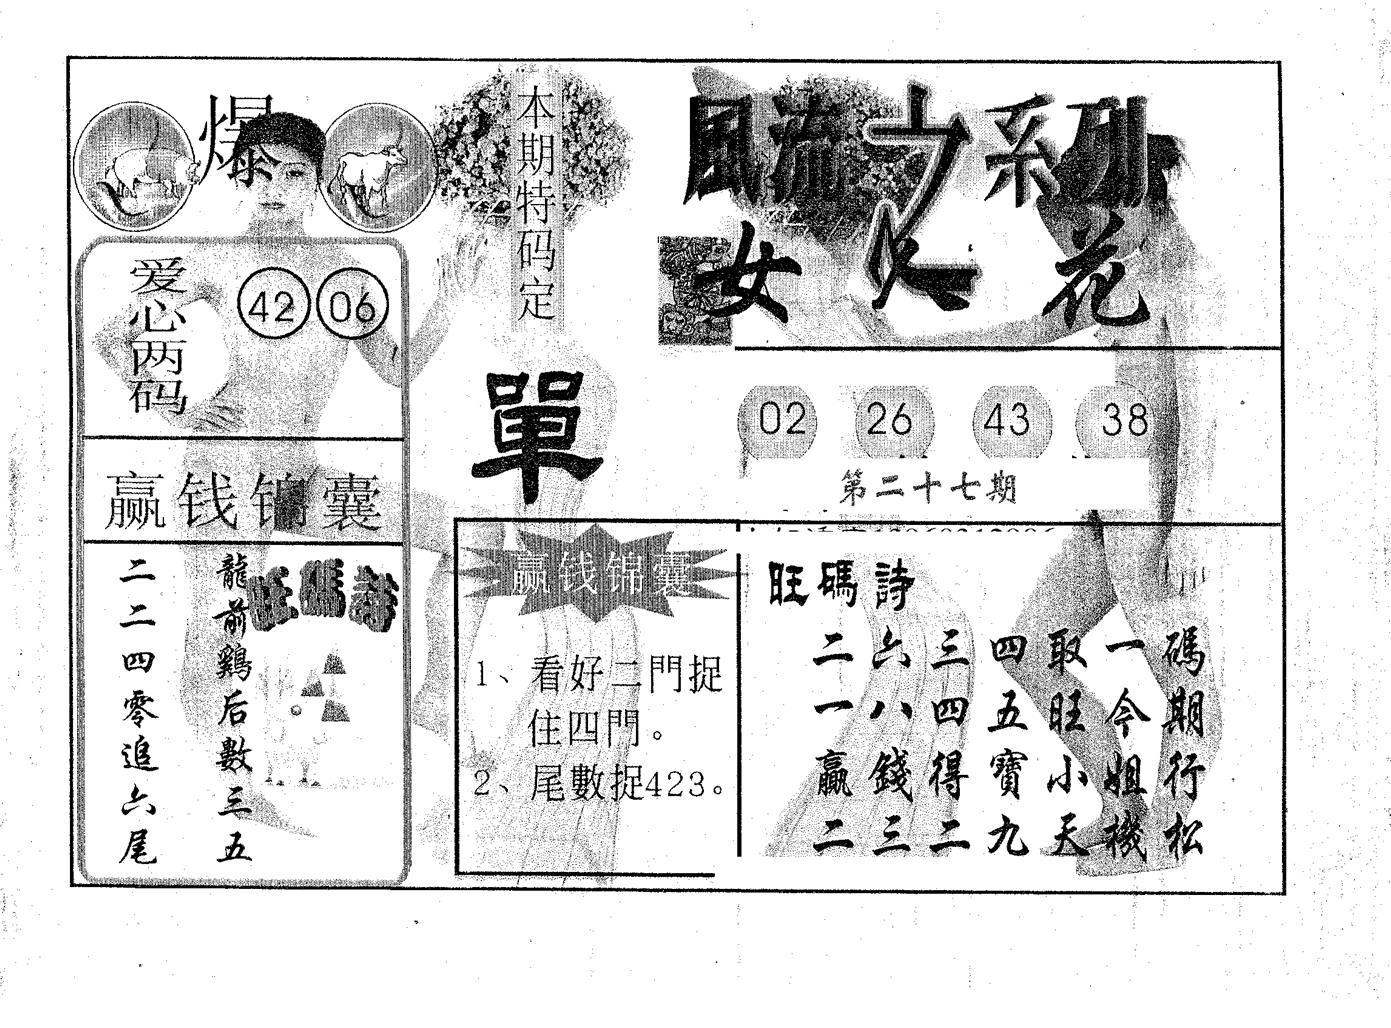 爆
本期特码定
風流之系列
女人花
爱心两码
42 06
單
02 26 43 38
第二十七期
赢钱锦囊
旺碼詩
龍前鷄后數三五
二二四零追六尾
赢钱锦囊
1、看好二門捉
住四門。
2、尾數捉423。
旺碼詩
二六三四取一碼
一八四五旺今期
贏錢得寶小姐行
二三二九天機松